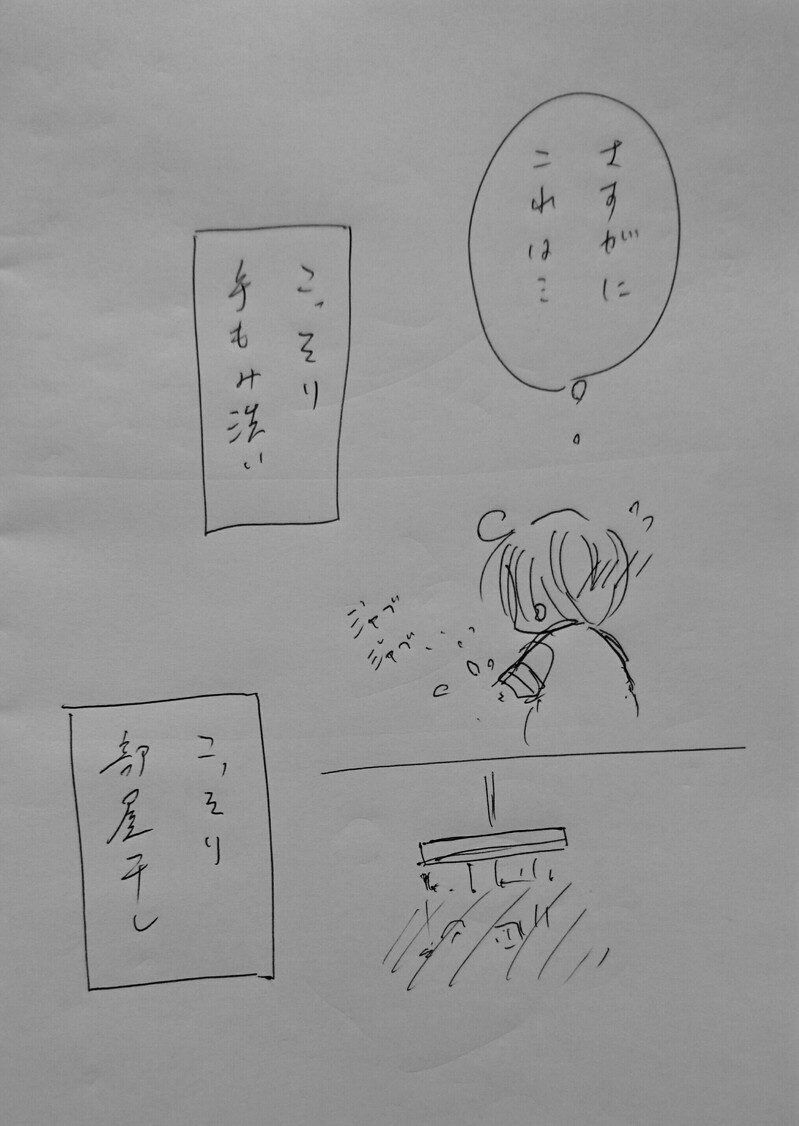 さすがに
これは…
こっそり
手もみ洗い
ジャブ
ジャブ
こっそり
部屋干し